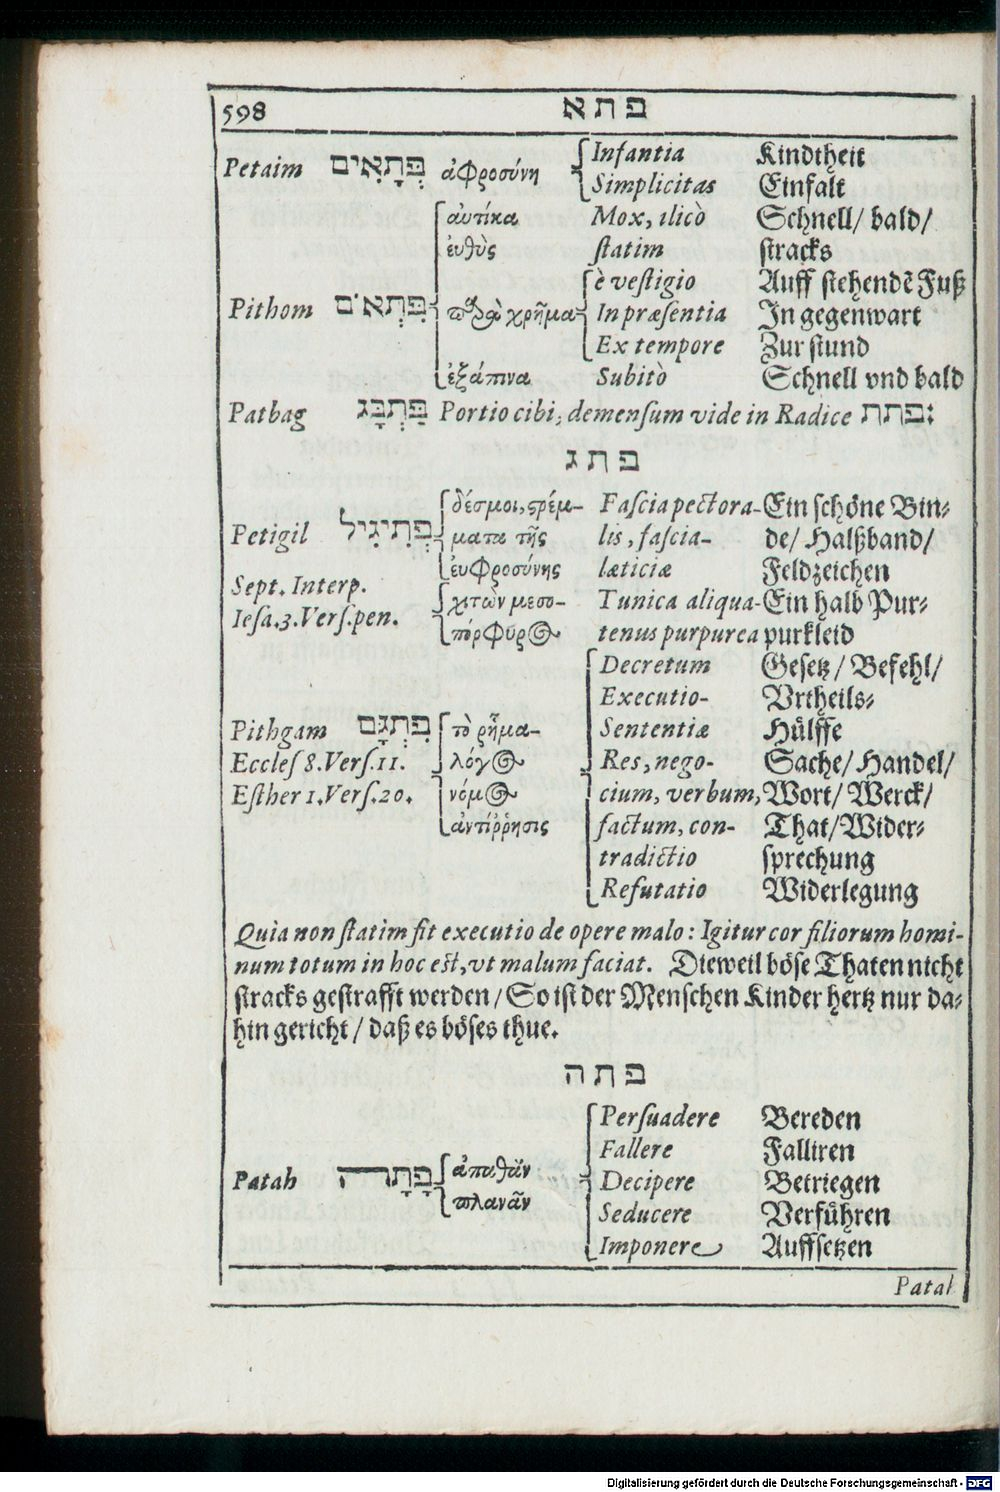 598 פתא
Petaim פְּתָאִים ἀφροσύνη Infantia Kindtheit
Simplicitas Einfalt
αὐτίκα Mox, ilicò Schnell/ bald/
ἐυθὺς statim stracks
è vestigio Auff stehendẽ Fuß
Pithom פִּתְאֹם παραχρῆμα In præsentia In gegenwart
Ex tempore Zur stund
ἐξάπινα Subitò Schnell vnd bald
Patbag פַּתְבָּג Portio cibi, demensum vide in Radice פתת:
פתג
δέσμοι, ϛρέμ- Fascia pectora- Ein schöne Bin-
Petigil פְּתִיגִיל ματα τῆς lis, fascia- de/ Halßband/
ἐυφροσύνης lætitiæ Feldzeichen
Sept. Interp. χιτὼν μεσο- Tunica aliqua- Ein halb Pur-
Iesa. 3. Vers. pen. πόρφυρος tenus purpurea purkleid
Decretum Gesetz/ Befehl/
Executio- Vrtheils-
Pithgam פִּתְגָּם τὸ ῥῆμα- Sententiæ Hülffe
Eccles 8. Vers. 11. λόγος Res, nego- Sache/ Handel/
Esther 1. Vers. 20. νόμος cium, verbum, Wort/ Werck/
ἀντίῤῥησις factum, con- That/ Wider-
tradictio sprechung
Refutatio Widerlegung
Quia non statim fit executio de opere malo: Igitur cor filiorum homi-
num totum in hoc est, vt malum faciat. Dieweil böse Thaten nicht
stracks gestrafft werden/ So ist der Menschen Kinder hertz nur da-
hin gericht/ daß es böses thue.
פתה
Persuadere Bereden
Fallere Falliren
Patah פָּתָה πλανᾶν Decipere Betriegen
Seducere Verführen
Imponere Auffsetzen
Patal
Digitalisierung gefördert durch die Deutsche Forschungsgemeinschaft - DFG